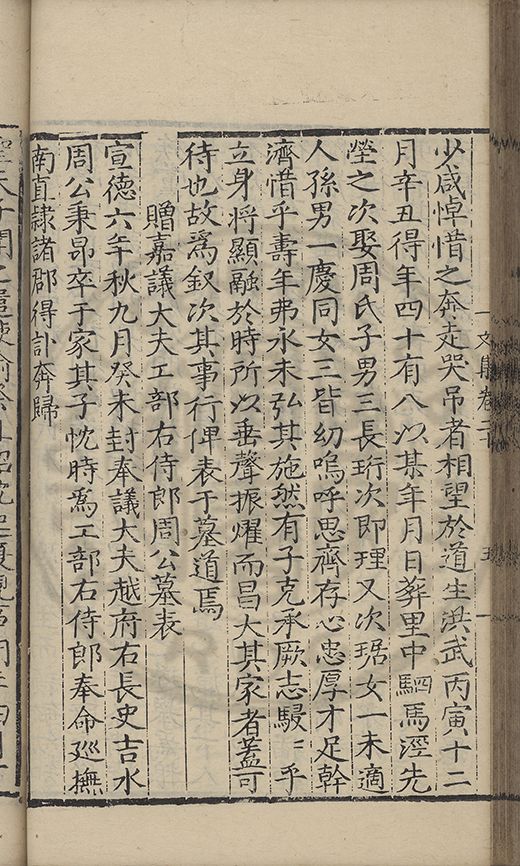 少咸悼惜之奔走哭吊者相望於道生洪武丙寅十二
月辛丑得年四十有八以某年月日葬里中駟馬涇先
塋之次娶周氏子男三長珩次即理又次琚女一未適
人孫男一慶同女三皆幼嗚呼思齊存心忠厚才足幹
濟惜乎壽年弗永未弘其施然有子克承厥志駸〻乎
立身将顯融於時所以垂聲振燿而昌大其家者蓋可
待也故爲叙次其事行俾表于墓道焉
贈嘉議大夫工部右侍郎周公墓表
宣德六年秋九月癸未封奉議大夫越府右長史吉水
周公秉昂卒于家其子忱時爲工部右侍郎奉命巡撫
南直隷諸郡得訃奔歸
文集卷二十
五